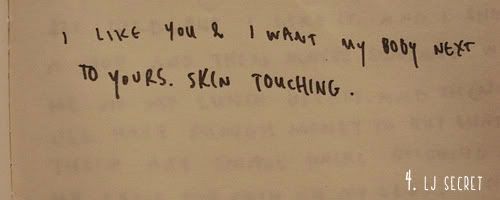 I LIKE YOU & I WANT MY BODY NEXT
TO YOURS. SKIN TOUCHING.
4. LJ SECRET